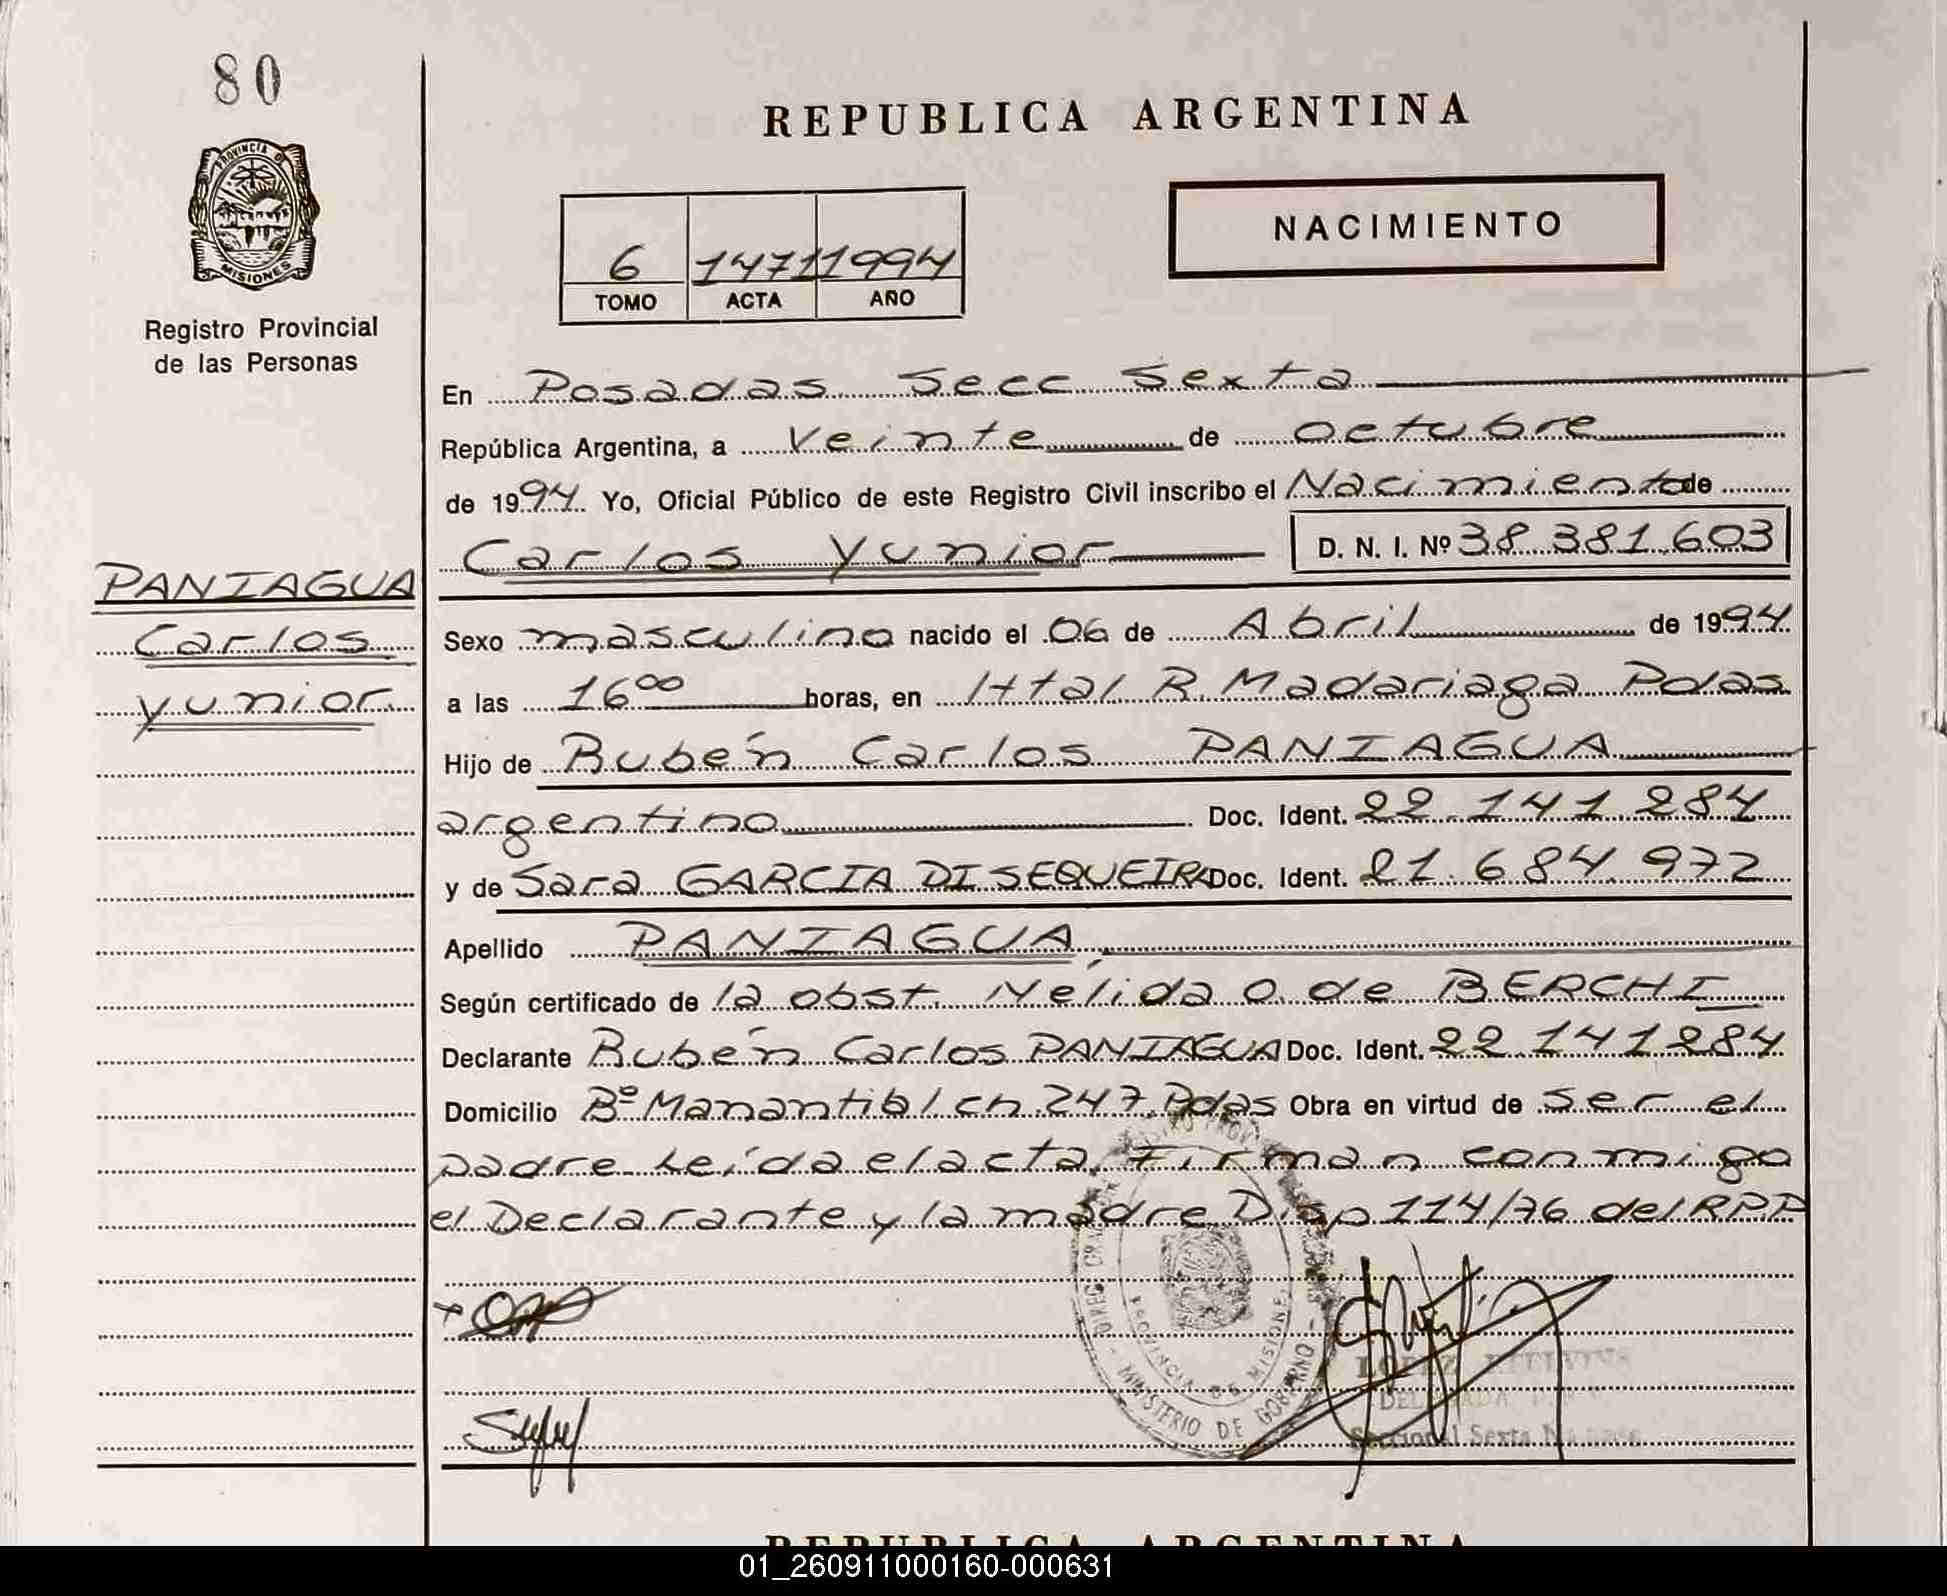 80
REPUBLICA ARGENTINA
PROVINCIA D
MISIONES
NACIMIENTO
6 1471 1994
TOMO ACTA AÑO
Registro Provincial
de las Personas
En Posadas Secc Sexta
República Argentina, a Veinte de octubre
de 1994 Yo, Oficial Público de este Registro Civil inscribo el Nacimiento de
Carlos Yunior D. N. I. Nº 38.381.603
PANIAGUA
Carlos
Yunior
Sexo masculino nacido el 06 de Abril de 1994
a las 16 00 horas, en Httal R. Madariaga Pdas
Hijo de Rubén Carlos PANIAGUA
argentino Doc. Ident. 22.141.284
y de Sara GARCIA DI SEQUEIRA Doc. Ident. 21.684.972
Apellido PANIAGUA
Según certificado de la obst. Nélida O. de BERCHI
Declarante Rubén Carlos PANIAGUA Doc. Ident. 22.141284
Domicilio Bº Manantial ch 247 Pdas Obra en virtud de ser el
padre Leída el acta, Firman conmigo
el Declarante y la madre Disp 114/76 del RPP
PROVINCIA DE MISIONES
MINISTERIO DE GOBIERNO
LOPEZ
Seccional Sexta
REPUBLICA ARGENTINA
01_260911000160-000631